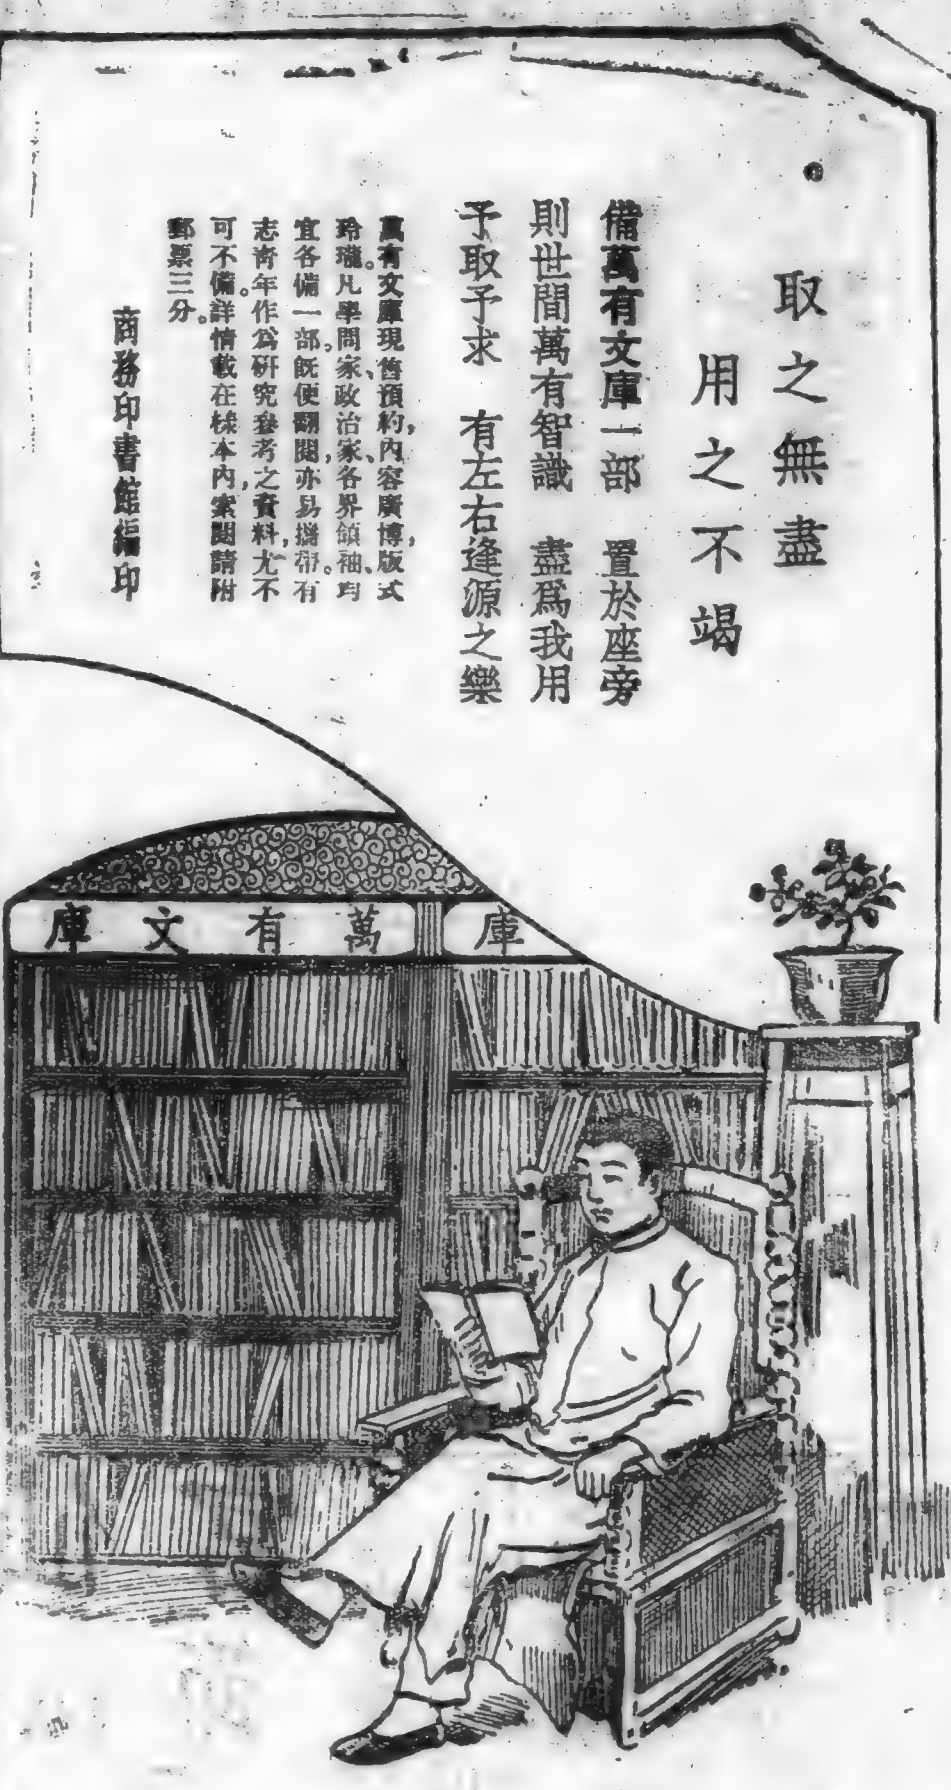 取之無盡
用之不竭
備萬有文庫一部　置於座旁
則世間萬有智識　盡爲我用
予取予求　有左右逢源之樂
萬有文庫現售預約，內容廣博，版式
玲瓏。凡學問家、政治家、各界領袖、均
宜各備一部。旣便翻閱，亦易攜帶。有
志靑年作爲硏究參考之資料，尤不
可不備。詳情載在樣本內，索閱請附
郵票三分。
商務印書館編印
庫文有萬
庫